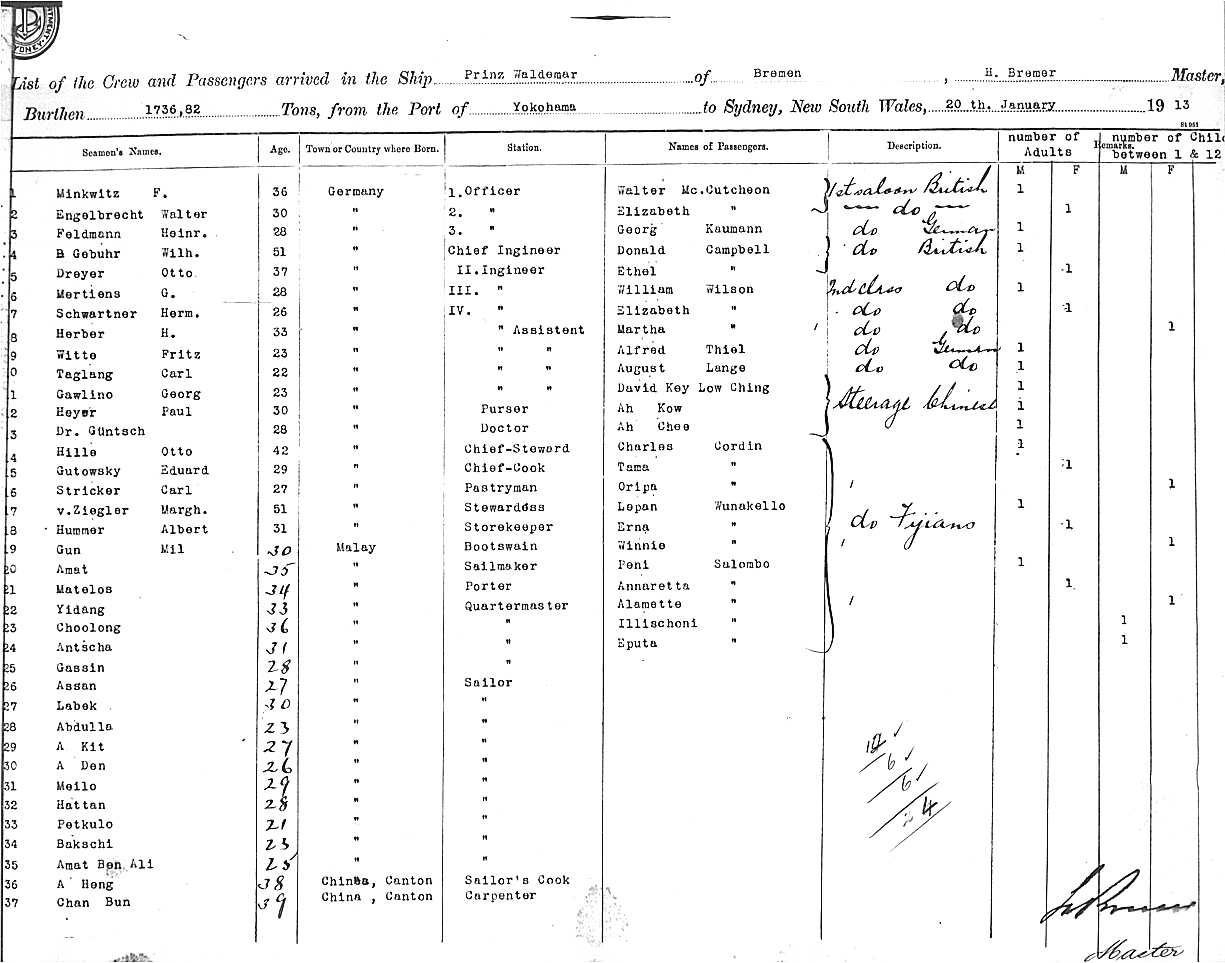 List of the Crew and Passengers arrived in the Ship Prinz Waldemar of Bremen , H. Bremer Master,
Burthen 1736,82 Tons, from the Port of Yokohama to Sydney, New South Wales, 20 th. January 19 13
Seamen's Names. Age. Town or Country where Born. Station. Names of Passengers. Description. number of Adults Remarks. number of Child between 1 & 12
M F M F
1 Minkwitz F. 36 Germany 1.Officer Walter Mc.Cutcheon 1st saloon British 1
2 Engelbrecht Walter 30 " 2. " Elizabeth " — do — 1
3 Feldmann Heinr. 28 " 3. " Georg Kaumann do German 1
4 B Gebuhr Wilh. 51 " Chief Ingineer Donald Campbell do British 1
5 Dreyer Otto 37 " II.Ingineer Ethel " 1
6 Mertiens G. 28 " III. " William Wilson 2nd class do 1
7 Schwartner Herm. 26 " IV. " Elizabeth " do do 1
8 Herber H. 33 " " Assistent Martha " do do 1
9 Witte Fritz 23 " " " Alfred Thiel do German 1
0 Taglang Carl 22 " " " August Lange do do 1
1 Gawlino Georg 23 " " " David Key Low Ching 1
2 Heyer Paul 30 " Purser Ah Kow Steerage Chinese 1
3 Dr. Güntsch 28 " Doctor Ah Chee 1
4 Hille Otto 42 " Chief-Steward Charles Cordin 1
5 Gutowsky Eduard 29 " Chief-Cook Tama " 1
6 Stricker Carl 27 " Pastryman Oripa " 1
7 v.Ziegler Margh. 51 " Stewardess Lepan Wunakello 1
8 Hummer Albert 31 " Storekeeper Erna " do Fijians 1
19 Gun Mil 30 Malay Bootswain Winnie " 1
20 Amat 35 " Sailmaker Peni Salombo 1
21 Matelos 34 " Porter Annaretta " 1
22 Yidang 33 " Quartermaster Alamette " 1
23 Choolong 36 " " Illischoni " 1
24 Antscha 31 " " Eputa " 1
25 Gassin 28 " "
26 Assan 27 " Sailor
27 Labek 30 " "
28 Abdulla 23 " "
29 A Kit 27 " "
30 A Den 26 " "
31 Meilo 29 " "
32 Hattan 28 " "
33 Petkulo 21 " "
34 Bakschi 23 " "
35 Amat Ben Ali 25 " "
36 A Hong 38 China, Canton Sailor's Cook
37 Chan Bun 39 China , Canton Carpenter
12
6
6
24
Master